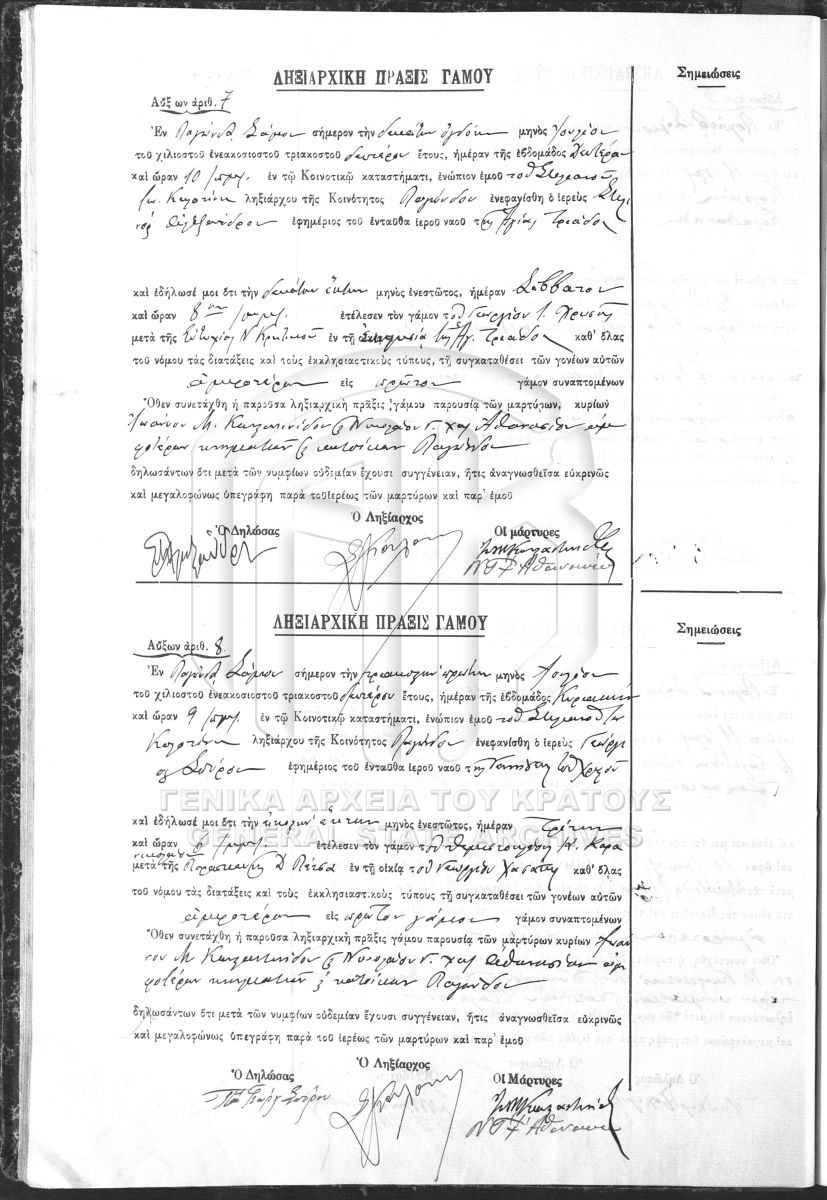 ΛΗΞΙΑΡΧΙΚΗ ΠΡΑΞΙΣ ΓΑΜΟΥ
Σημειώσεις
Αὔξ ων ἀριθ. 7
Ἐν Παγώνδᾳ Σάμου σήμερον τὴν δεκάτην ὀγδόην μηνὸς Ἰουλίου
τοῦ χιλιοστοῦ ἐνεακοσιοστοῦ τριακοστοῦ δευτέρου ἔτους, ἡμέραν τῆς ἑβδομάδος Δευτέραν
καὶ ὥραν 10 π.μ. ἐν τῷ Κοινοτικῷ καταστήματι, ἐνώπιον ἐμοῦ τοῦ Στυλιανοῦ
ληξιάρχου τῆς Κοινότητος Παγώνδου ἐνεφανίσθη ὁ ἱερεὺς
Ἀλεξάνδρου ἐφημέριος τοῦ ἐνταῦθα ἱεροῦ ναοῦ τῆς Ἁγίας Τριάδος
καὶ ἐδήλωσέ μοι ὅτι τὴν δεκάτην ἕκτην μηνὸς ἐνεστῶτος, ἡμέραν Σάββατον
καὶ ὥραν 8 ἐτέλεσεν τὸν γάμον τοῦ Γεωργίου Ι. Χρυσῆ
μετὰ τῆς Εὐτυχίας Ν Κρητικοῦ ἐν τῇ τῆς Ἁγ. Τριάδος καθ' ὅλας
τοῦ νόμου τὰς διατάξεις καὶ τοὺς ἐκκλησιαστικοὺς τύπους, τῇ συγκαταθέσει τῶν γονέων αὐτῶν
ἀμφοτέρων εἰς πρῶτον γάμον συναπτομένων
Ὅθεν συνετάχθη ἡ παροῦσα ληξιαρχικὴ πρᾶξις γάμου παρουσίᾳ τῶν μαρτύρων, κυρίων
Ἰωάννου Μ. Νικολάου Γ. Χατ Ἀθανασίου ἀμ
φοτέρων κτηματιῶν κατοίκων Παγώνδου
δηλωσάντων ὅτι μετὰ τῶν νυμφίων οὐδεμίαν ἔχουσι συγγένειαν, ἥτις ἀναγνωσθεῖσα εὐκρινῶς
καὶ μεγαλοφώνως ὑπεγράφη παρὰ τοῦ ἱερέως τῶν μαρτύρων καὶ παρ' ἐμοῦ
Ὁ Δηλώσας Ὁ Ληξίαρχος Οἱ μάρτυρες
ΛΗΞΙΑΡΧΙΚΗ ΠΡΑΞΙΣ ΓΑΜΟΥ
Σημειώσεις
Αὔξων ἀριθ. 8.
Ἐν Παγώνδᾳ Σάμου σήμερον τὴν τριακοστὴν πρώτην μηνὸς Ἰουλίου
τοῦ χιλιοστοῦ ἐνεακοσιοστοῦ τριακοστοῦ δευτέρου ἔτους, ἡμέραν τῆς ἑβδομάδος Κυριακὴν
καὶ ὥραν 9 π.μ. ἐν τῷ Κοινοτικῷ καταστήματι, ἐνώπιον ἐμοῦ τοῦ Στυλιανοῦ Ιω
ληξιάρχου τῆς Κοινότητος Παγώνδου ἐνεφανίσθη ὁ ἱερεὺς Γεώργι
ος Σπύρου ἐφημέριος τοῦ ἐνταῦθα ἱεροῦ ναοῦ τῆς Γεννήσεως τοῦ Χριστοῦ
ΓΕΝΙΚΑ ΑΡΧΕΙΑ ΤΟΥ ΚΡΑΤΟΥΣ
GENERAL STATE ARCHIVES
καὶ ἐδήλωσέ μοι ὅτι τὴν εἰκοστὴν ἕκτην μηνὸς ἐνεστῶτος, ἡμέραν Τρίτην
καὶ ὥραν 8 ἐτέλεσεν τὸν γάμον τοῦ Θεμιστοκλέους Κ. Καρα
μετὰ τῆς Παρασκευῆς Δ Πέτσα ἐν τῇ οἰκίᾳ τοῦ Γεωργίου καθ' ὅλας
τοῦ νόμου τὰς διατάξεις καὶ τοὺς ἐκκλησιαστικοὺς τύπους τῇ συγκαταθέσει τῶν γονέων αὐτῶν
ἀμφοτέρων εἰς πρῶτον γάμον γάμον συναπτομένων
Ὅθεν συνετάχθη ἡ παροῦσα ληξιαρχικὴ πρᾶξις γάμου παρουσίᾳ τῶν μαρτύρων κυρίων Ἰωάν
νου Μ Νικολάου Γ. Χατ Ἀθανασίου ἀμ
φοτέρων κτηματιῶν κατοίκων Παγώνδου
δηλωσάντων ὅτι μετὰ τῶν νυμφίων οὐδεμίαν ἔχουσι συγγένειαν, ἥτις ἀναγνωσθεῖσα εὐκρινῶς
καὶ μεγαλοφώνως ὑπεγράφη παρὰ τοῦ ἱερέως τῶν μαρτύρων καὶ παρ' ἐμοῦ
Ὁ Δηλώσας Ὁ Ληξίαρχος Οἱ Μάρτυρες